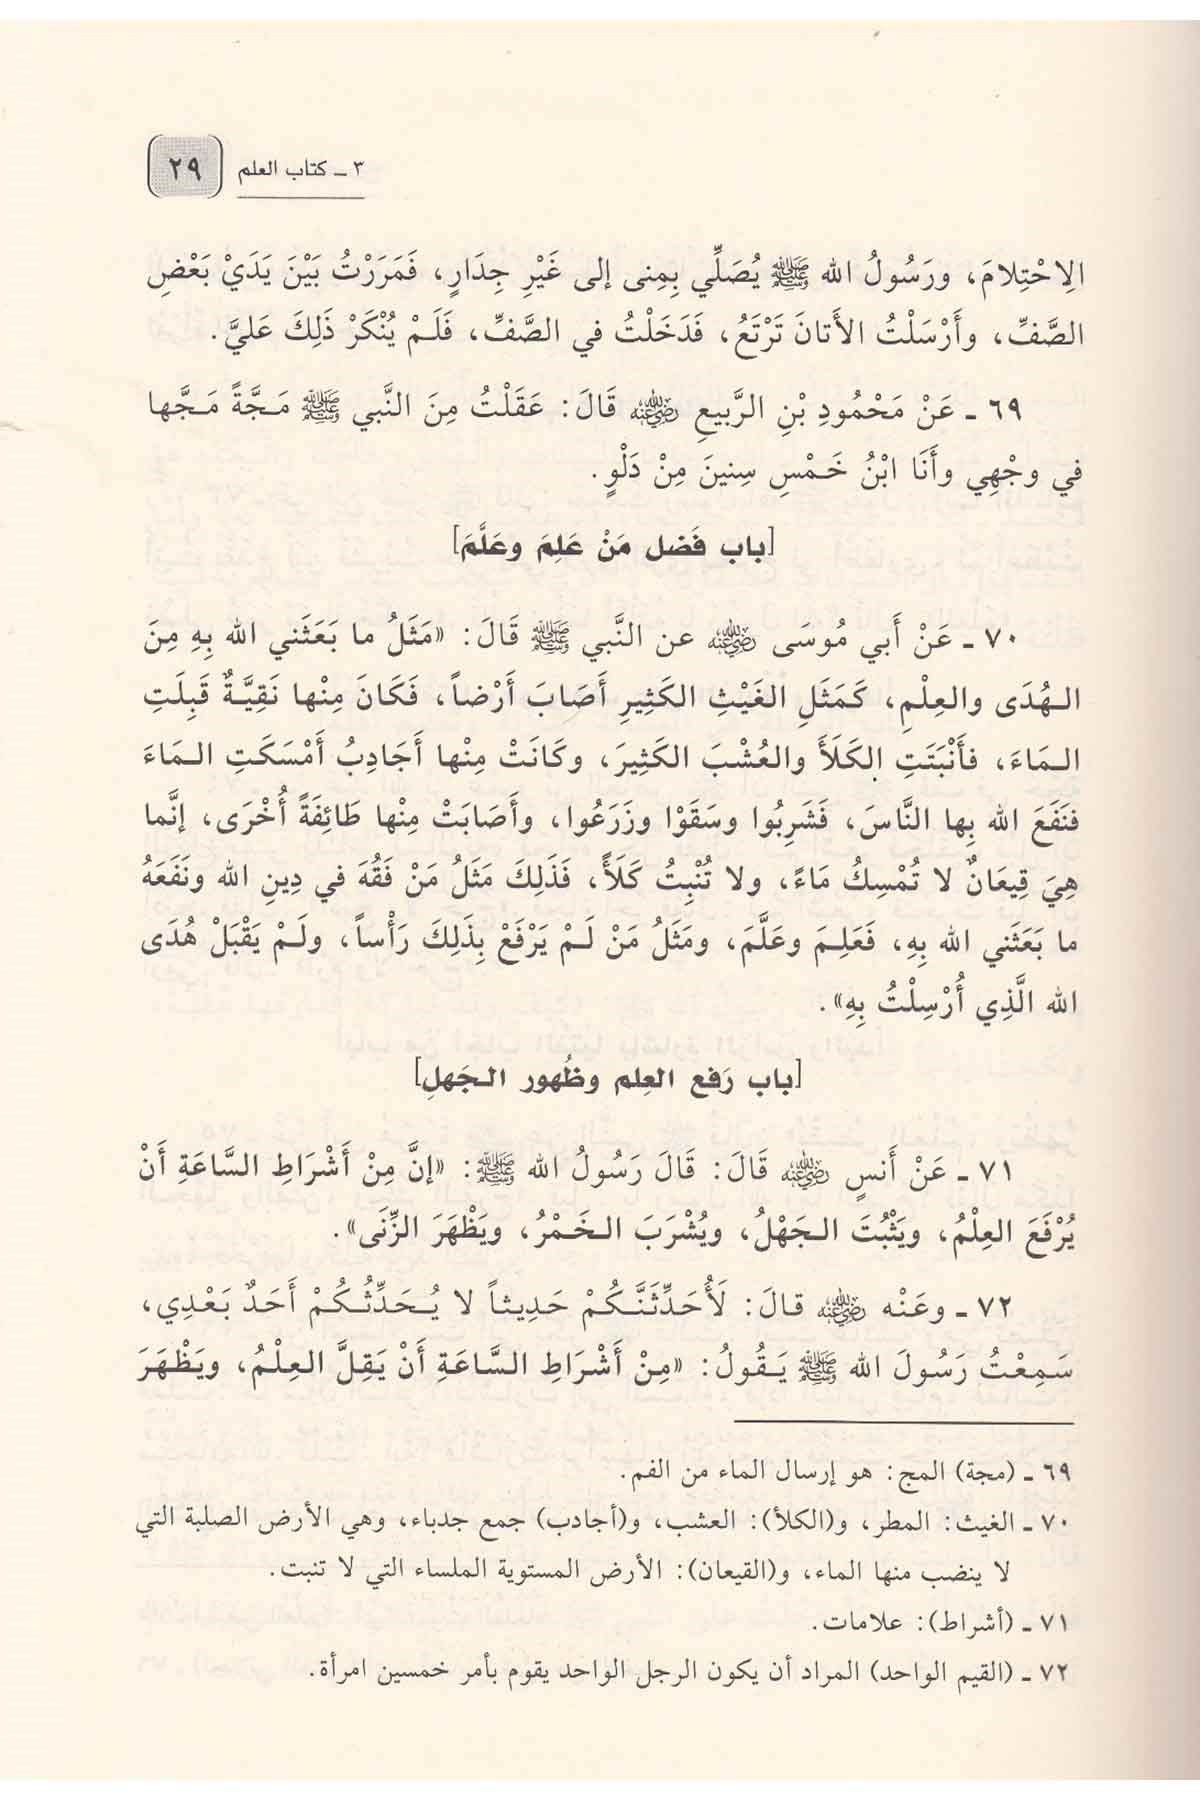 ٣ ـ كتاب العلم
٢٩
الِاحْتِلامَ، ورَسُولُ الله ﷺ يُصَلِّي بِمِنى إلى غَيْرِ جِدَارٍ، فَمَرَرْتُ بَيْنَ يَدَيْ بَعْضِ
الصَّفِّ، وأَرْسَلْتُ الأَتانَ تَرْتَعُ، فَدَخَلْتُ في الصَّفِّ، فَلَمْ يُنْكَرْ ذَلِكَ عَليَّ.
٦٩ ـ عَنْ مَحْمُودِ بْنِ الرَّبيعِ رضي الله عنه قَالَ: عَقَلْتُ مِنَ النَّبي ﷺ مَجَّةً مَجَّها
في وجْهِي وأَنَا ابْنُ خَمْسِ سِنينَ مِنْ دَلْوٍ.
[باب فَضل مَنْ عَلِمَ وعَلَّمَ]
٧٠ ـ عَنْ أَبي مُوسَى رضي الله عنه عن النَّبي ﷺ قَالَ: «مَثَلُ ما بَعَثَني الله بِهِ مِنَ
الهُدَى والعِلْمِ، كَمَثَلِ الغَيْثِ الكَثِيرِ أَصَابَ أَرْضاً، فَكَانَ مِنْها نَقِيَّةٌ قَبِلَتِ
المَاءَ، فأَنْبَتَتِ الكَلَأَ والعُشْبَ الكَثِيرَ، وكَانَتْ مِنْها أَجَادِبُ أَمْسَكَتِ المَاءَ
فنَفَعَ الله بِها النَّاسَ، فَشَرِبُوا وسَقَوْا وزَرَعُوا، وأَصَابَتْ مِنْها طَائِفَةً أُخْرَى، إنَّما
هِيَ قِيعَانٌ لا تُمْسِكُ مَاءً، ولا تُنْبِتُ كَلَأً، فَذَلِكَ مَثَلُ مَنْ فَقُهَ في دِينِ الله ونَفَعَهُ
ما بَعَثَني الله بِهِ، فَعَلِمَ وعَلَّمَ، ومَثَلُ مَنْ لَمْ يَرْفَعْ بِذَلِكَ رَأْساً، ولَمْ يَقْبَلْ هُدَى
الله الَّذِي أُرْسِلْتُ بِهِ».
[باب رَفع العِلم وظُهور الجَهلِ]
٧١ ـ عَنْ أَنسٍ رضي الله عنه قَالَ: قَالَ رَسُولُ الله ﷺ: «إنَّ مِنْ أَشْرَاطِ السَّاعَةِ أَنْ
يُرْفَعَ العِلْمُ، ويَثْبُتَ الجَهْلُ، ويُشْرَبَ الخَمْرُ، ويَظْهَرَ الزِّنَى».
٧٢ ـ وعَنْه رضي الله عنه قالَ: لَأُحَدِّثَنَّكُمْ حَدِيثاً لا يُحَدِّثُكُمْ أَحَدٌ بَعْدِي،
سَمِعْتُ رَسُولَ الله ﷺ يَقُولُ: «مِنْ أَشْرَاطِ السَّاعَةِ أَنْ يَقِلَّ العِلْمُ، ويَظْهَرَ
٦٩ ـ (مجة) المج: هو إرسال الماء من الفم.
٧٠ ـ الغيث: المطر، و(الكلأ): العشب، و(أجادب) جمع جدباء، وهي الأرض الصلبة التي
لا ينضب منها الماء، و(القيعان): الأرض المستوية الملساء التي لا تنبت.
٧١ ـ (أشراط): علامات.
٧٢ ـ (القيم الواحد) المراد أن يكون الرجل الواحد يقوم بأمر خمسين امرأة.